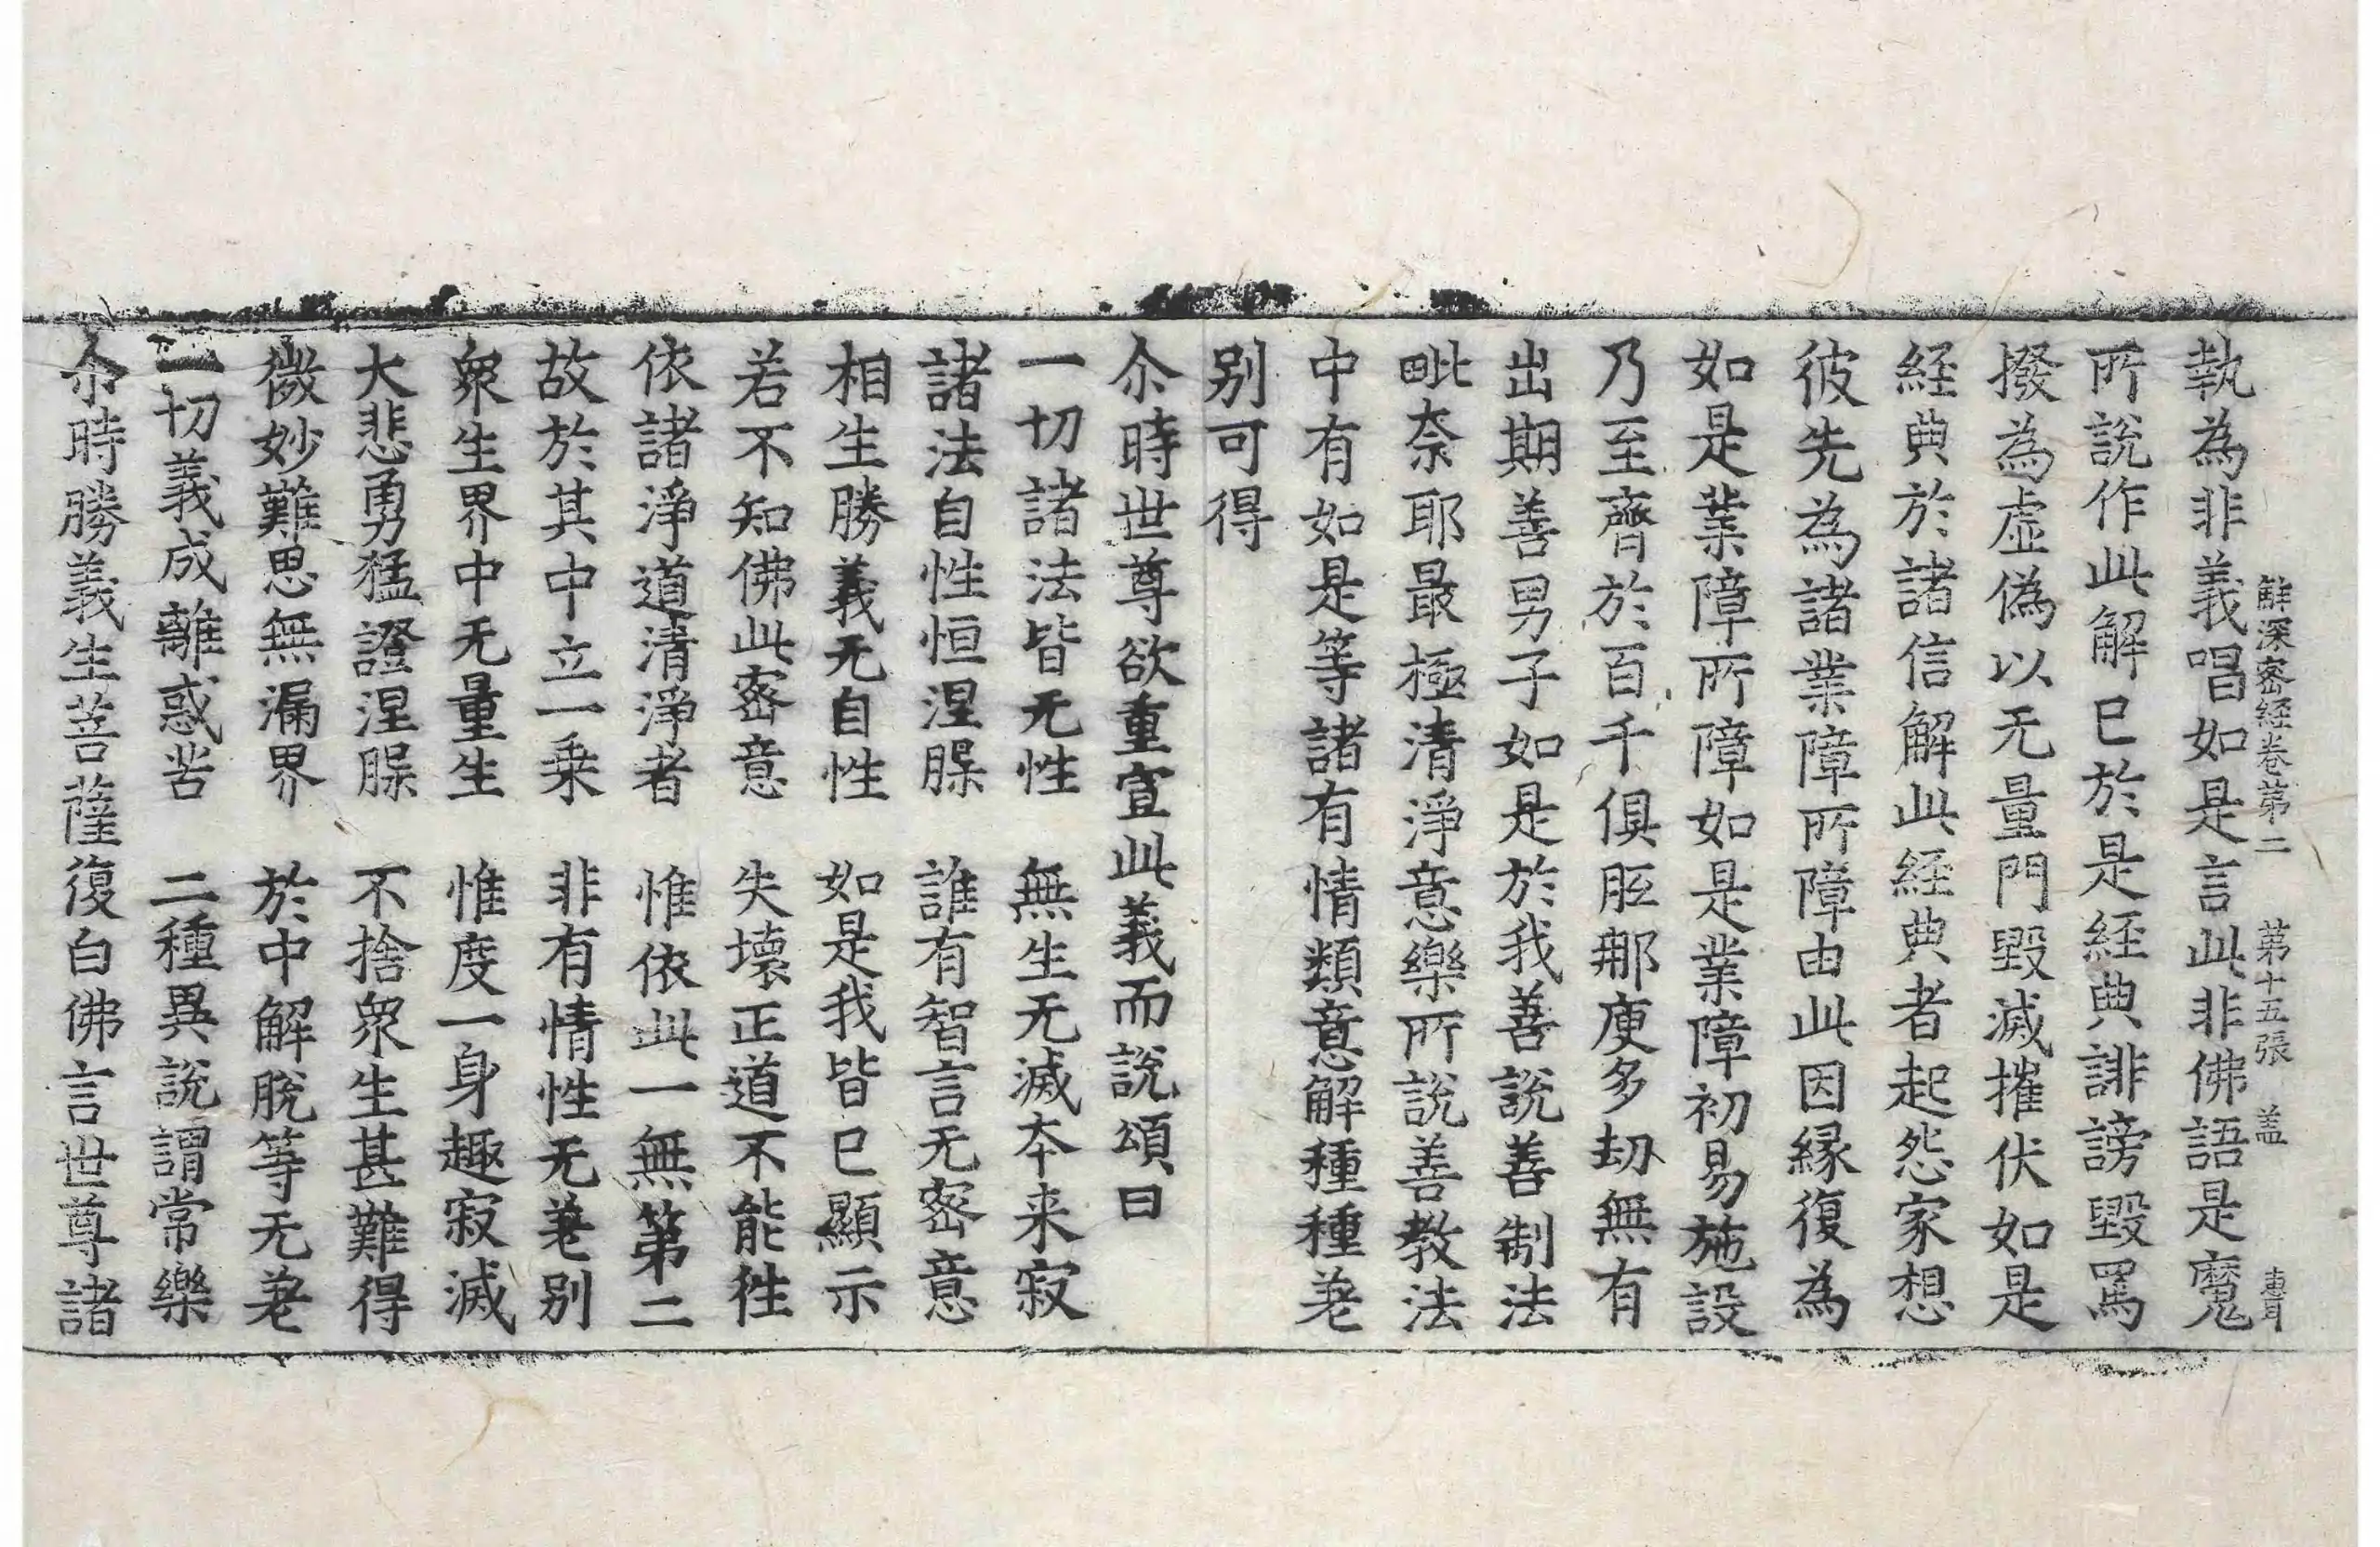 解深密経卷苐二　苐十五張　盖　惠耳
執為非義唱如是言此非佛語是魔
所說作此解已於是経典誹謗毀罵
撥為虛偽以无量門毀滅摧伏如是
経典於諸信解此経典者起怨家想
彼先為諸業障所障由此因縁復為
如是業障所障如是業障初易施設
乃至齊於百千俱胝那庾多劫無有
出期善男子如是於我善說善制法
毗奈耶最極清淨意樂所說善教法
中有如是等諸有情類意解種種差
别可得
尒時世尊欲重宣此義而說頌曰
一切諸法皆无性　無生无滅本来寂
諸法自性恒涅槃　誰有智言无密意
相生勝義无自性　如是我皆已顯示
若不知佛此密意　失壞正道不能徃
依諸淨道清淨者　惟依此一無苐二
故於其中立一乗　非有情性无差别
衆生界中无量生　惟度一身趣寂滅
大悲勇猛證涅槃　不捨衆生甚難得
微妙難思無漏界　於中解脫等无差
一切義成離惑苦　二種異說謂常樂
尒時勝義生菩薩復白佛言世尊諸